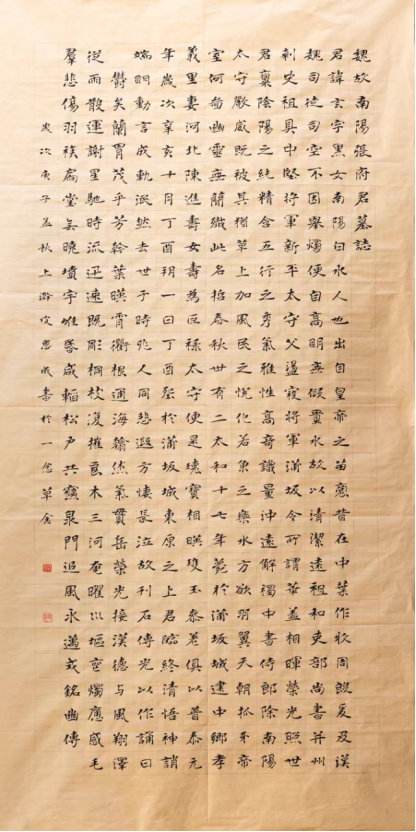 魏故南陽張府君墓誌
君諱玄字黑女南陽白水人也出自皇帝之苗裔昔在中葉作牧周殷爰及漢
魏司徒司空不因舉燭便自高明無假置水故以清潔遠祖和吏部尚書并州
刺史祖具中堅將軍新平太守父盪寇將軍蒲坂令所謂華蓋相暉榮光照世
君稟陰陽之純精含五行之秀氣雅性高奇識量沖遠解褐中書侍郎除南陽
太守嚴威既被其猶草上加風民之悅化若魚之樂水方欲羽翼天朝抓牙帝
室何啚幽靈無簡殲此名哲春秋世有二太和十七年薨於蒲坂城建中鄉孝
義里妻河北陳進壽女壽為巨祿太守便是瓌寶相暎瓊玉參差俱以普泰元
年歲次辛亥十月丁酉朔一日丁酉葬於蒲坂城東原之上君臨終清悟神誚
端明動言成軌泯然去世于時兆人同悲遐方悽長泣故刊石傳光以作誦曰
鬱矣蘭胄茂乎芳幹葉暎霄衢根通海翰然氣貫岳榮光接漢德与風翔澤
從雨散運謝星馳時流迅速既彫桐枝復摧良木三河奄曜堀室燭應感毛
羣悲傷羽族扃堂無曉墳宇唯昏咸韜松戶共寢泉門追風永邁式銘幽傳
歲次庚子孟秋上澣書於一念草舍